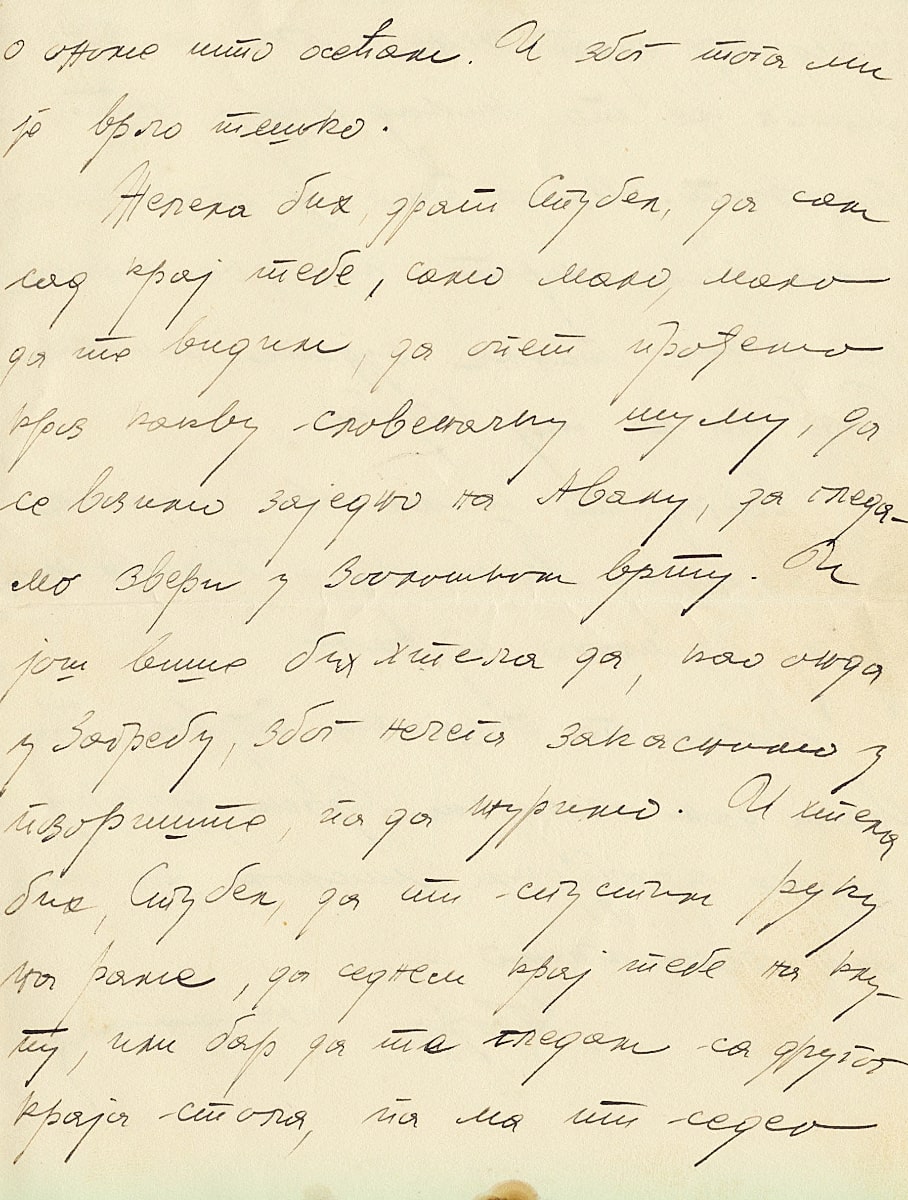 о ономе што осећам. И због тога ми
је врло тешко.
Желела бих, драги Стубел, да сам
сад крај тебе, само мало, мало
да те видим, да опет прођемо
кроз какву словеначку шуму, да
се возимо заједно на Авалу, да гледа-
мо звери у Зоолошком врту. И
још више бих хтела да, као онда
у Загребу, због нечега закаснимо у
позориште, па да журимо. И хтела
бих, Стубел, да ти спустим руку
на раме, да седнем крај тебе на клу-
пу, или бар да те гледам са другог
краја стола, па ма ти седео